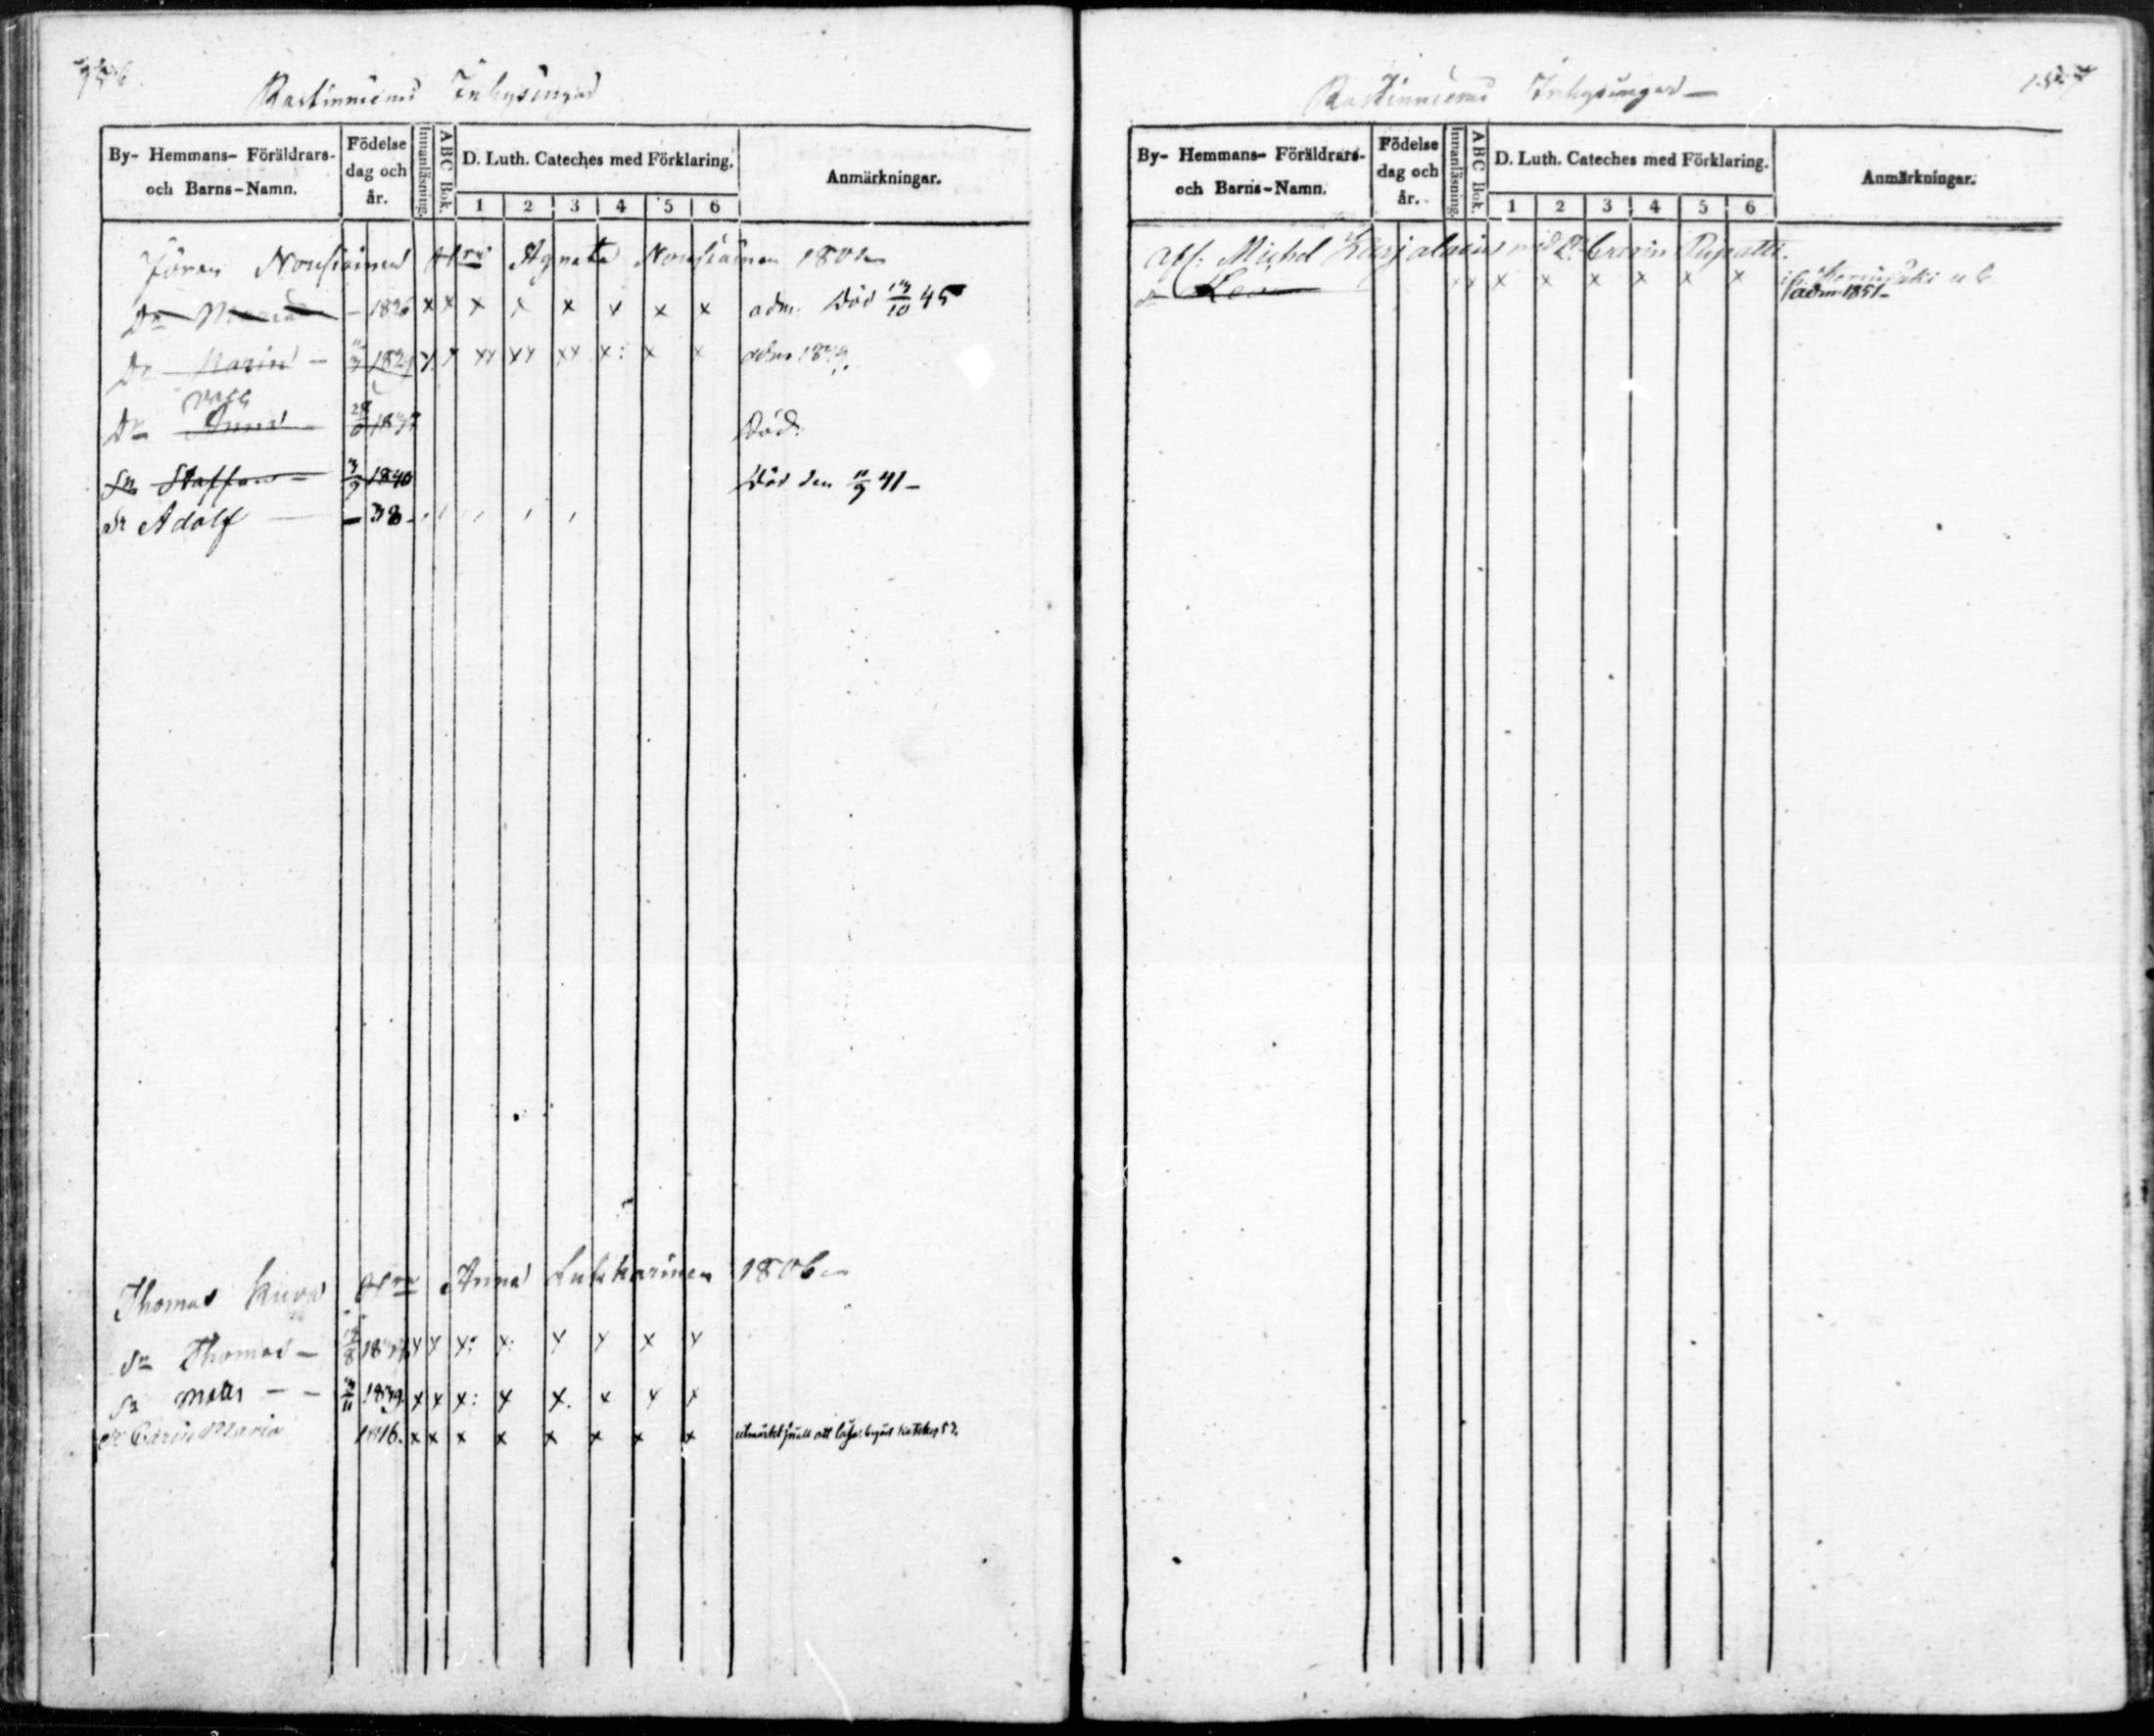 156.
Rastinniemi Inhysingar
By- Hemmans- Föräldrars- och Barns-Namn.
Födelse dag och år.
Innanläsning.
ABC Bok.
D. Luth. Cateches med Förklaring.
1 2 3 4 5 6
Anmärkningar.
Jöran Nousiainen Hru Agneta Nousiainen 1801
Dr Maria – 1826 x x x x x x x x adm. död 13/10 45
Dr Karin – 1829 x x xx xx xx x: x x adm 1849.
Dr Anna död.
Sn Staffan – 1840 död den 11/9 41–
Sn Adolf – 38–
Thomas Kuva Hru Anna Lukkarinen 1806
Sn Thomas – x x x: x: x x x x
Sn Mats – – 1839. x x x: x x. x x x
Dr Carin Maria 1846. x x x x x x x x
157
Rastinniemi Inhysingar –
By- Hemmans- Föräldrars- och Barns-Namn.
Födelse dag och år.
Innanläsning.
ABC Bok.
D. Luth. Cateches med Förklaring.
1 2 3 4 5 6
Anmärkningar.
Afl: Michel Karjalainens
x x x x x x x x
adm 1851–